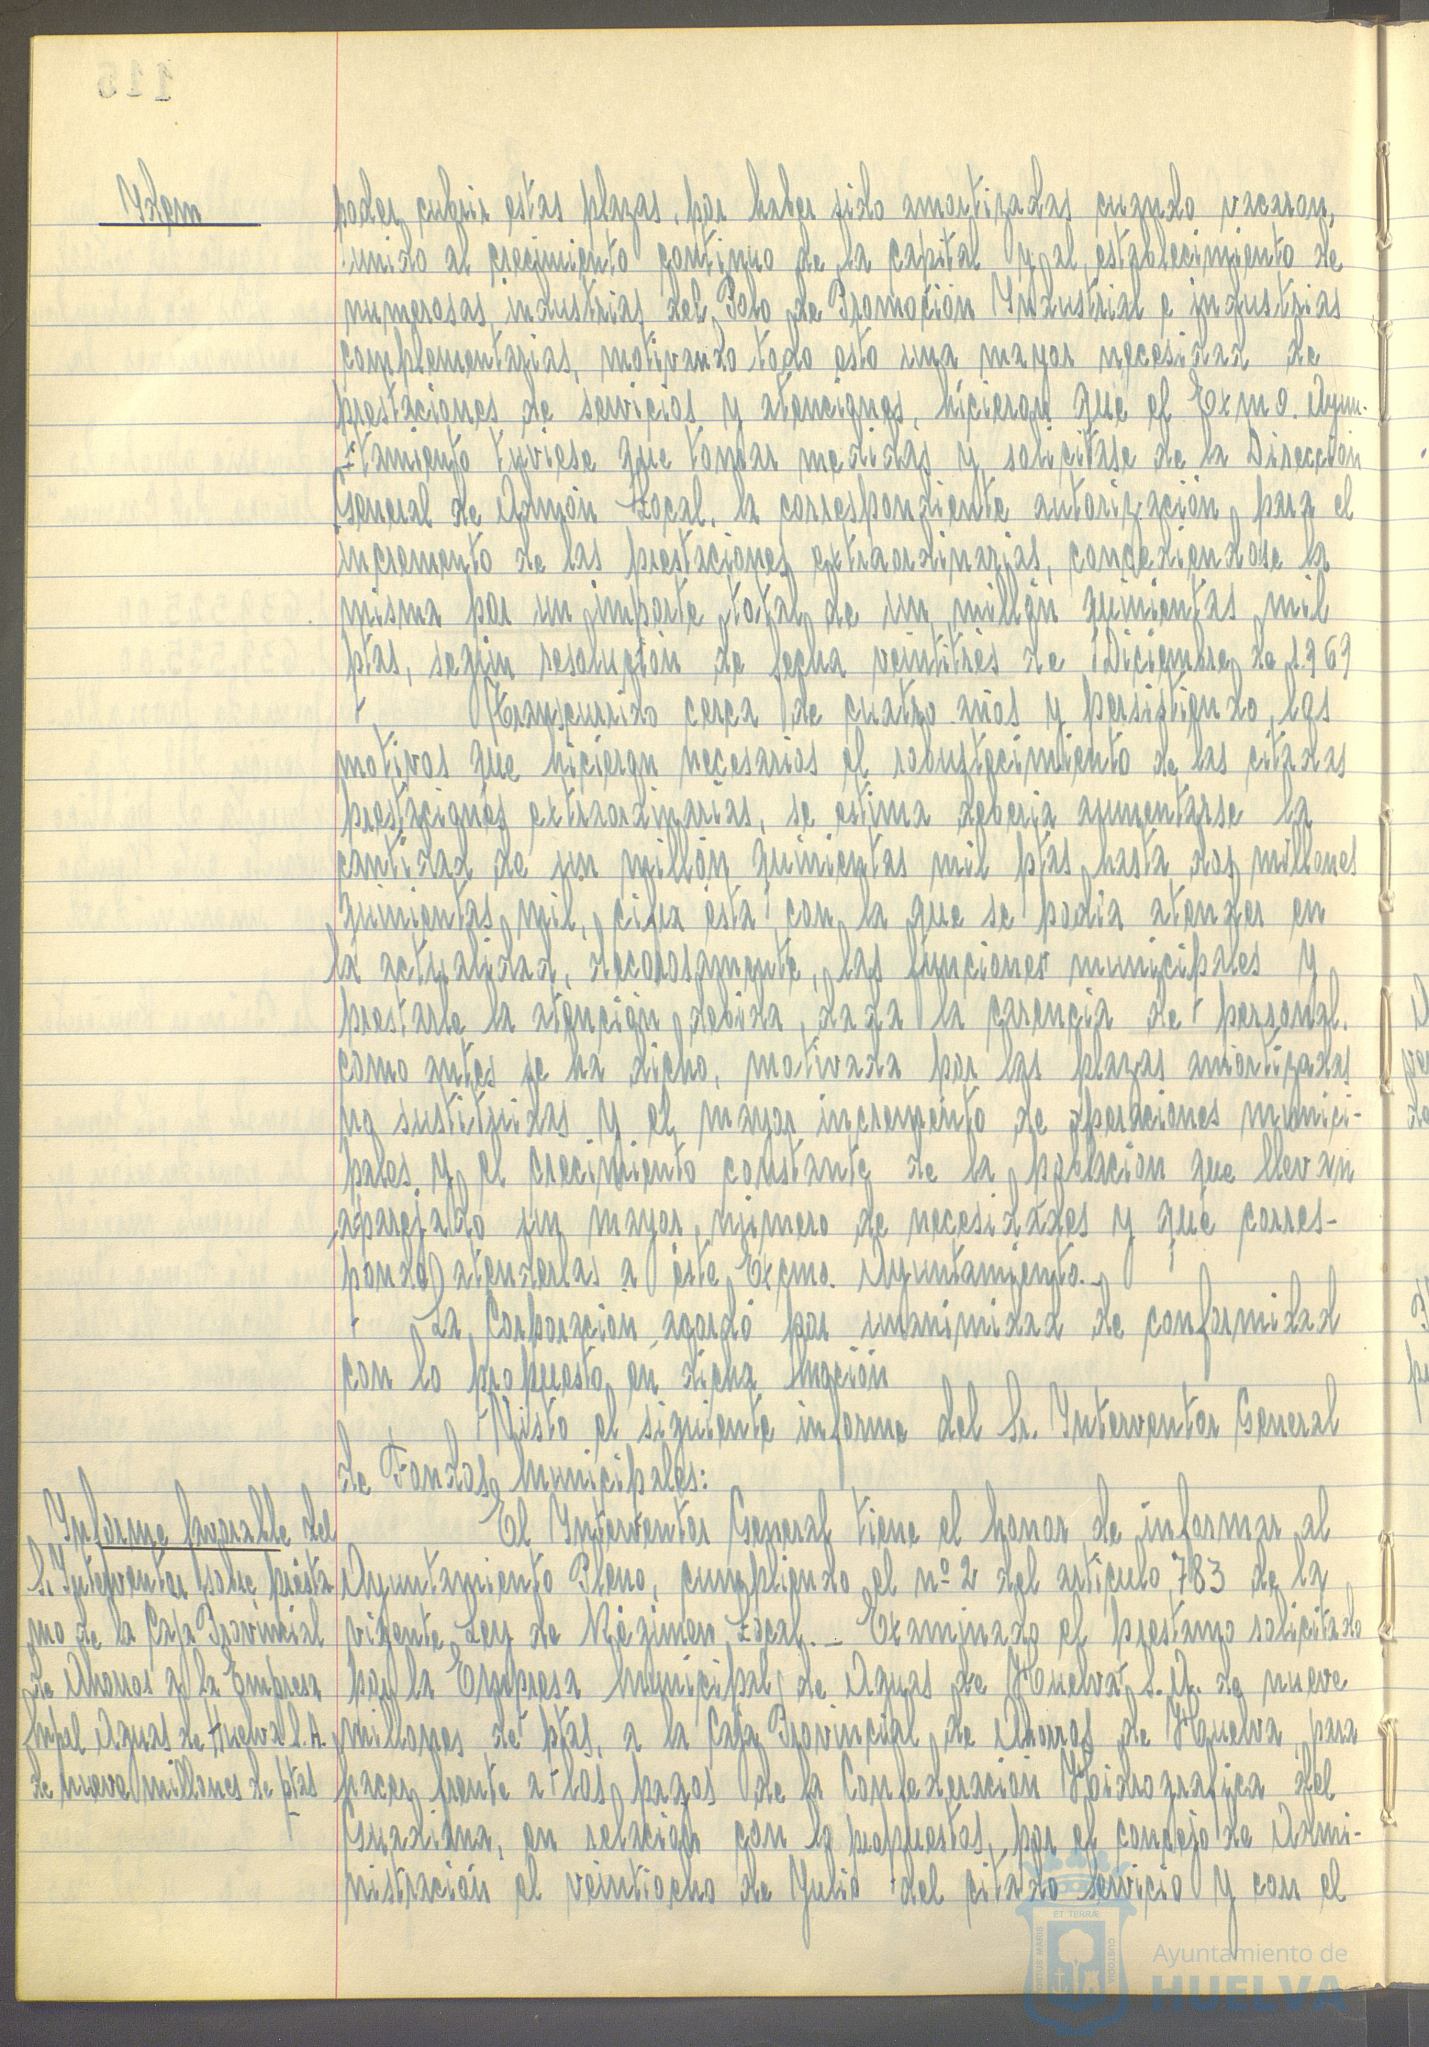 Ydem
poder cubrir estas plazas, por haber sido amortizadas cuando vacaron,
unido al crecimiento continuo de la capital y al establecimiento de
numerosas industrias del Polo de Promoción Yndustrial e industrias
complementarias, motivando todo esto una mayor necesidad de
prestaciones de servicios y atenciones, hicieron que el Exmo. Ayun-
tamiento tuviese que tomar medidas y solicitase de la Dirección
General de Admón Local, la correspondiente autorización para el
incremento de las prestaciones extraordinarias, concediendose la
misma por un importe total de un millón quinientas mil
ptas, según resolución de fecha veintitres de Diciembre de 1.969
Transcurrido cerca de cuatro años y persistiendo los
motivos que hicieron necesarios el robustecimiento de las citadas
prestaciones extraordinarias, se estima deberia aumentarse la
cantidad de un millón quinientas mil ptas hasta dos millones
quinientas mil, cifra ésta con la que se podia atender en
la actualidad, decorosamente, las funciones municipales y
prestarle la atención debida, dada la carencia de personal.
como antes se ha dicho, motivada por las plazas amortizadas
no sustituidas y el mayor incremento de operaciones munici-
pales y el crecimiento constante de la población que llevan
aparejado un mayor número de necesidades y que corres-
ponde atenderlas a éste Excmo. Ayuntamiento.-
La Corporación acordó por unanimidad de conformidad
con lo propuesto en dicha Moción
Visto el siguiente informe del Sr. Ynterventor General
de Fondos Municipales:
Ynforme favorable del
Sr. Ynterventor sobre présta
mo de la Caja Provincial
de Ahorros a la Empresa
Mpal Aguas de Huelva S.A.
de nueve millones de ptas
El Ynterventor General tiene el honor de informar al
Ayuntamiento Pleno, cumpliendo el nº 2 del articulo 783 de la
vigente Ley de Régimen Local.- Examinado el prestamo solicitado
por la Empresa Municipal de Aguas de Huelva S.A. de nueve
millones de ptas, a la Caja Provincial de Ahorros de Huelva, para
hacer frente a los pagos de la Confederación Hidrografica del
Guadiana, en relación con lo propuestos, por el concejo de Admi-
nistración el veintiocho de Julio del citado servicio y con el
Ayuntamiento de
HUELVA